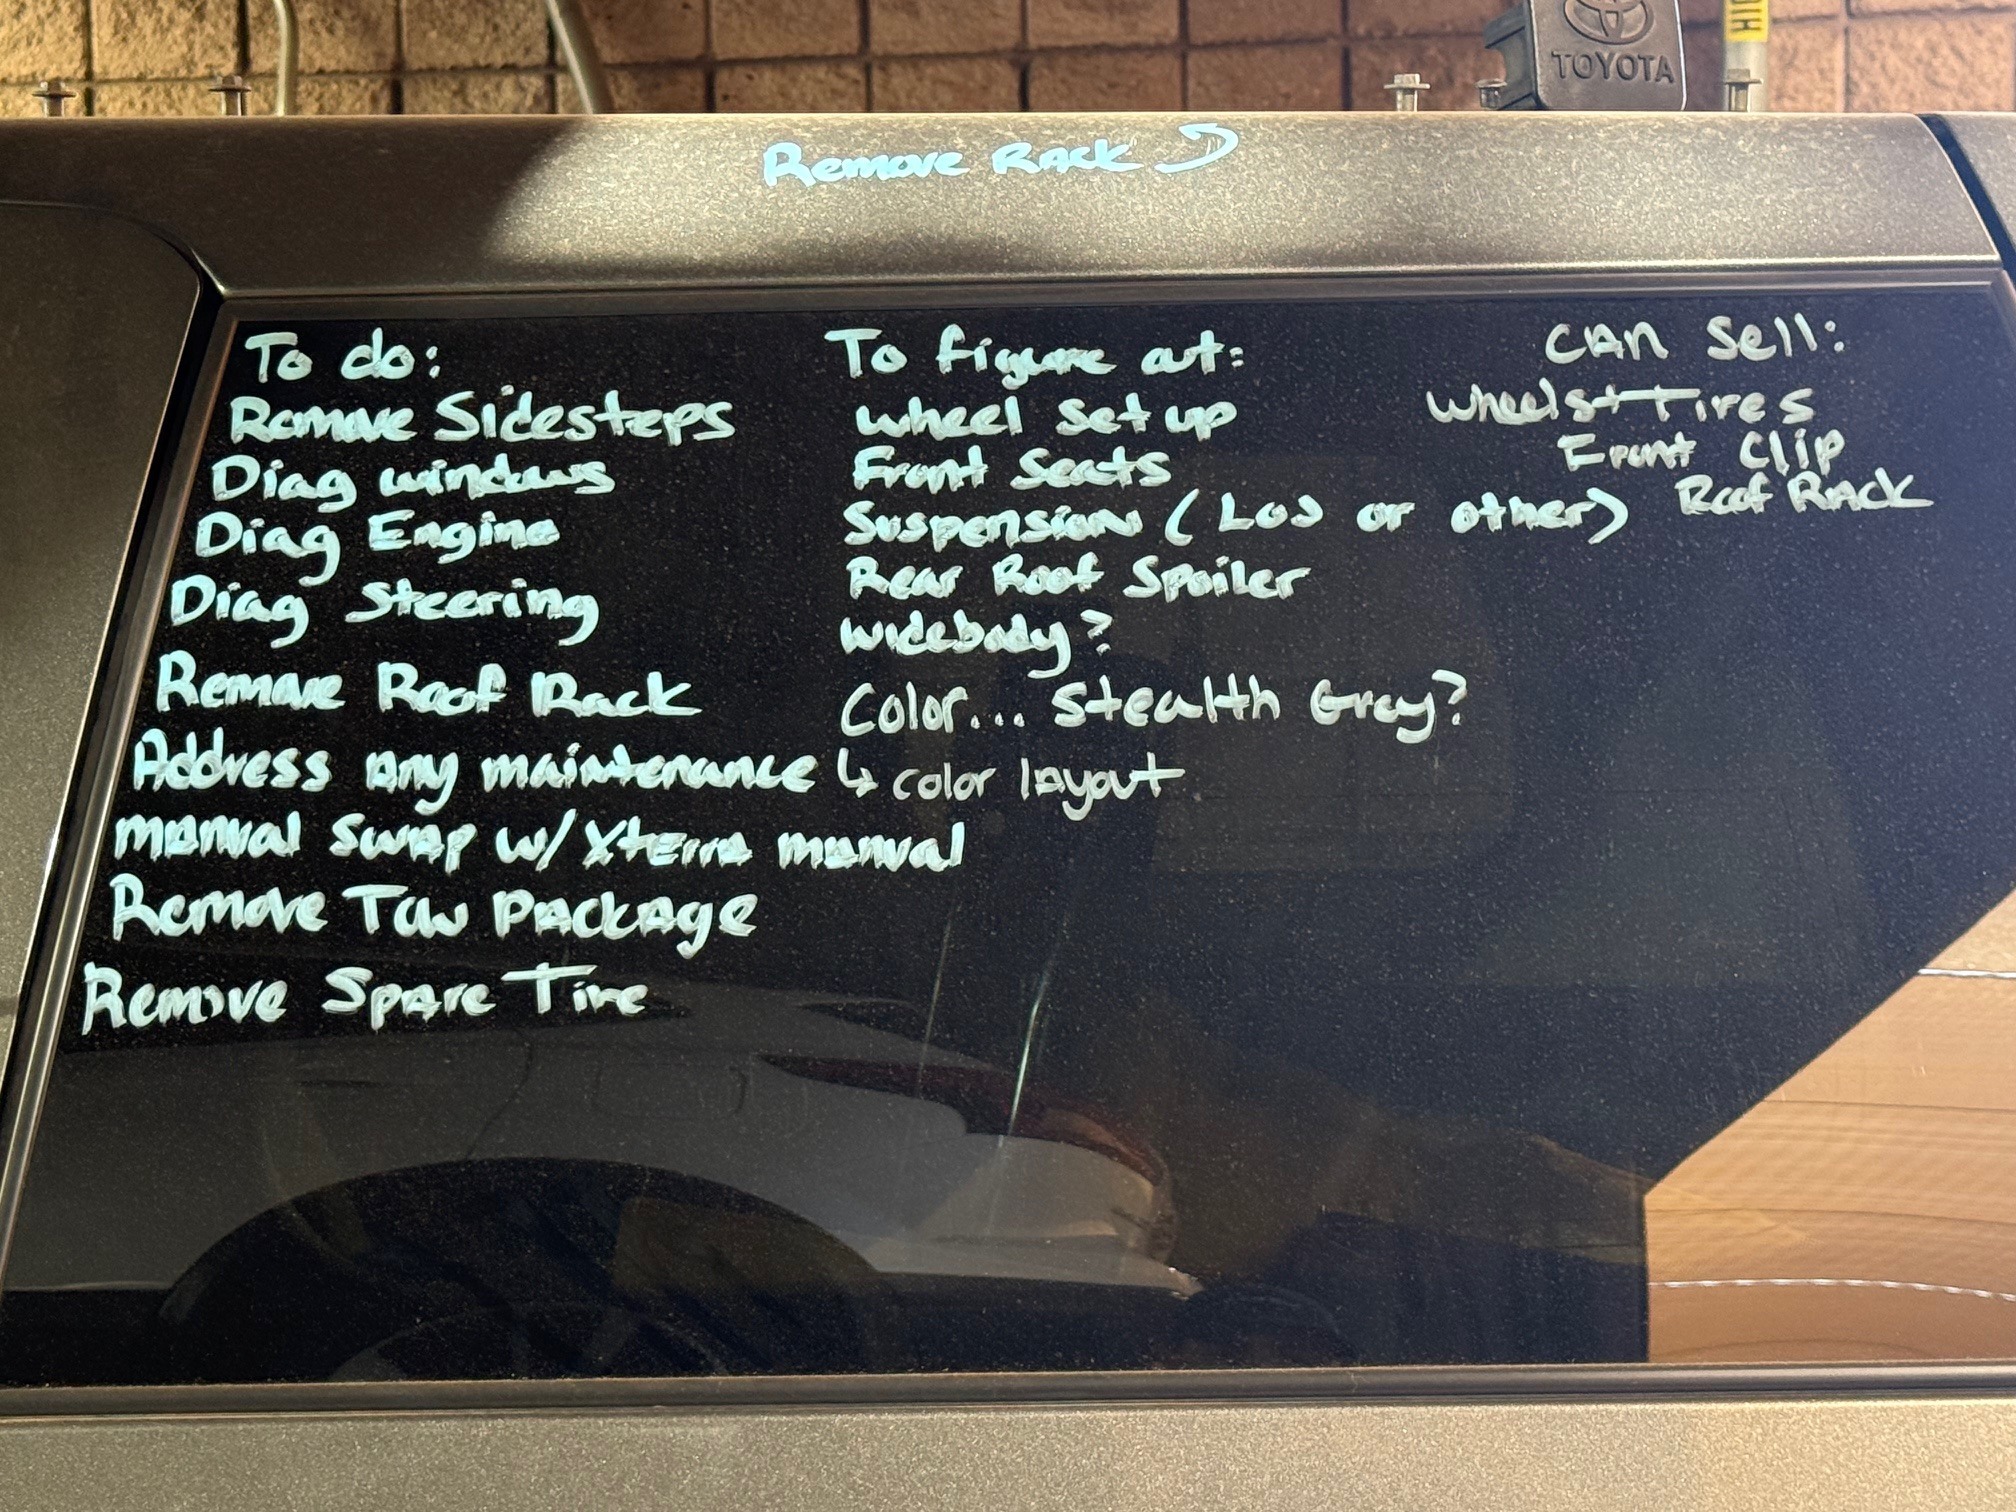 TOYOTA
HIG
Remove Rack
To do:
Remove Sidesteps
Diag windows
Diag Engine
Diag Steering
Remove Roof Rack
Address any maintenance
manual swap w/ Xterra manual
Remove Tow Package
Remove Spare Tire
To figure out:
wheel set up
Front Seats
Suspension (Low or other)
Rear Roof Spoiler
widebody?
Color... Stealth Gray?
↳ color layout
CAN Sell:
wheels + Tires
Front Clip
Roof Rack